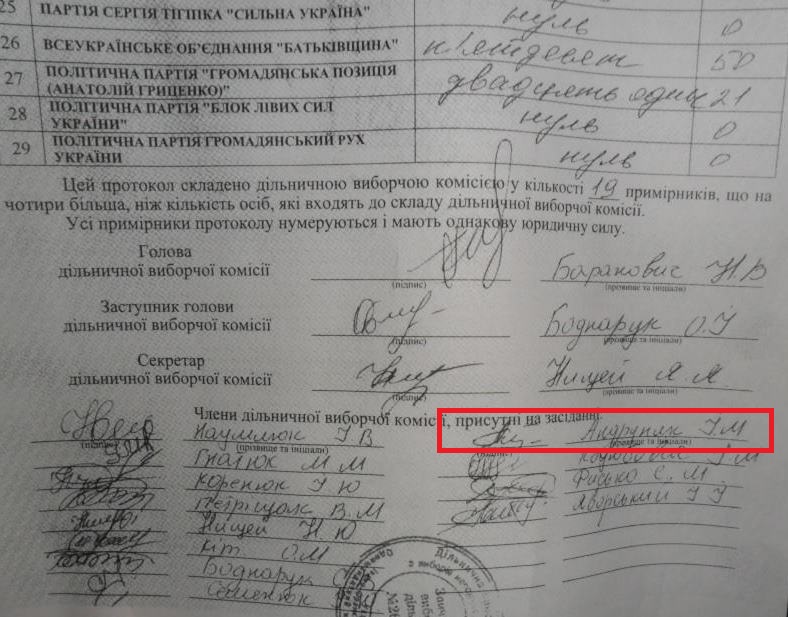 25 ПАРТІЯ СЕРГІЯ ТІГІПКА "СИЛЬНА УКРАЇНА" нуль 0
26 ВСЕУКРАЇНСЬКЕ ОБ'ЄДНАННЯ "БАТЬКІВЩИНА" п'ятдесят 50
27 ПОЛІТИЧНА ПАРТІЯ "ГРОМАДЯНСЬКА ПОЗИЦІЯ (АНАТОЛІЙ ГРИЦЕНКО)" двадцять один 21
28 ПОЛІТИЧНА ПАРТІЯ "БЛОК ЛІВИХ СИЛ УКРАЇНИ" нуль 0
29 ПОЛІТИЧНА ПАРТІЯ ГРОМАДЯНСЬКИЙ РУХ УКРАЇНИ нуль 0
Цей протокол складено дільничною виборчою комісією у кількості 19 примірників, що на
чотири більша, ніж кількість осіб, які входять до складу дільничної виборчої комісії.
Усі примірники протоколу нумеруються і мають однакову юридичну силу.
Голова
дільничної виборчої комісії Баранович Н.В
(підпис) (прізвище та ініціали)
Заступник голови
дільничної виборчої комісії Боднарук О.І
(підпис) (прізвище та ініціали)
Секретар
дільничної виборчої комісії Ницей Я.Я
(підпис) (прізвище та ініціали)
Члени дільничної виборчої комісії, присутні на засіданні:
Наумлюк І В Андруняк І.М
(прізвище та ініціали) (підпис) (прізвище та ініціали)
Гнатюк М М І М
Коренюк І Ю Фисько С.М.
Петріщак В.М Яворський І І
Ницей Н.Ю
Кіт О.М
Боднарук
Семенюк
Дільнична